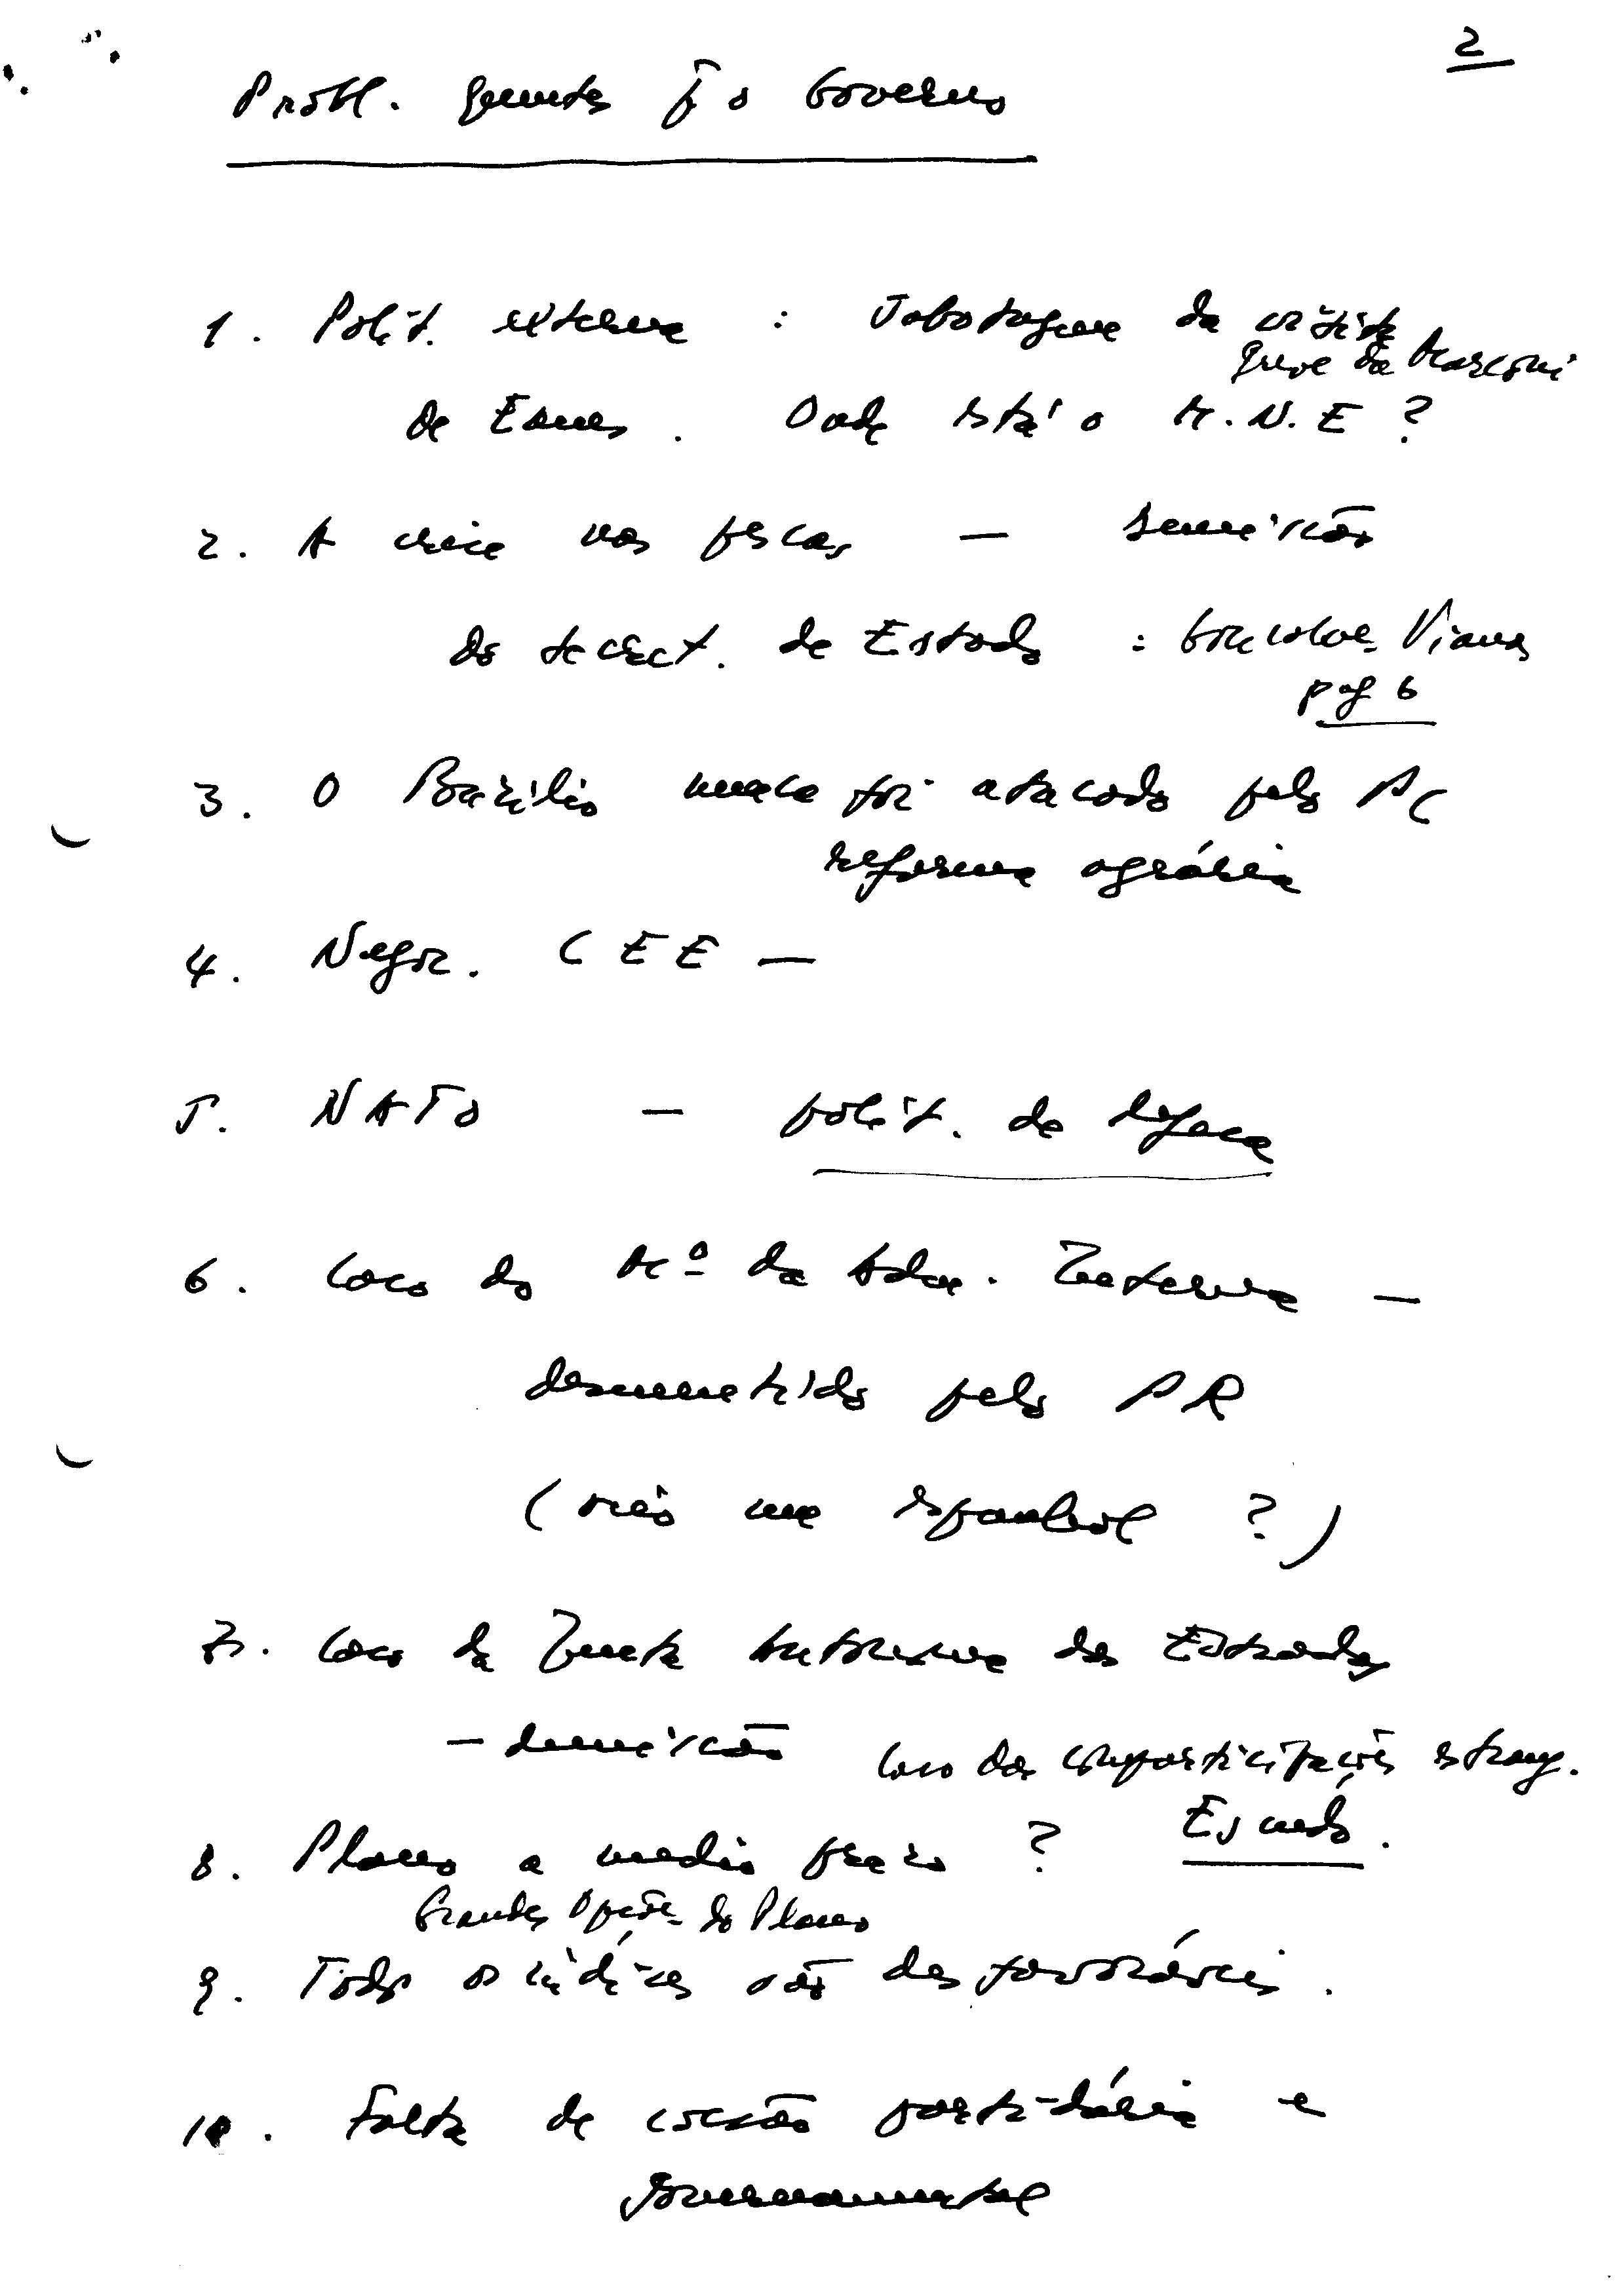 2
Probl. quentes p/ o Governo
1. Polít. externa : Sabotagem da visita
greve da Marconi
de Eanes. Onde está o M.N.E?
2. A crise nas pescas — demissão
do secret. de Estado : Gonçalves Viana
pag 6
3. O Basílio nunca foi atacado pelo PC
reforma agrária
4. Negoc. CEE —
5. NATO — polít. de defesa
6. Caso do Mº da Adm. Interna —
desmentido pelo PR
(não me espanhol ?)
7. Caso da Junta Autónoma das Estradas
— demissão caso das comparticipações estrang.
8. Plano a medio prazo ?
Grandes Opções do Plano
9. Todos os índices são desfavoráveis.
10. Falta de coesão partidária e
governamental